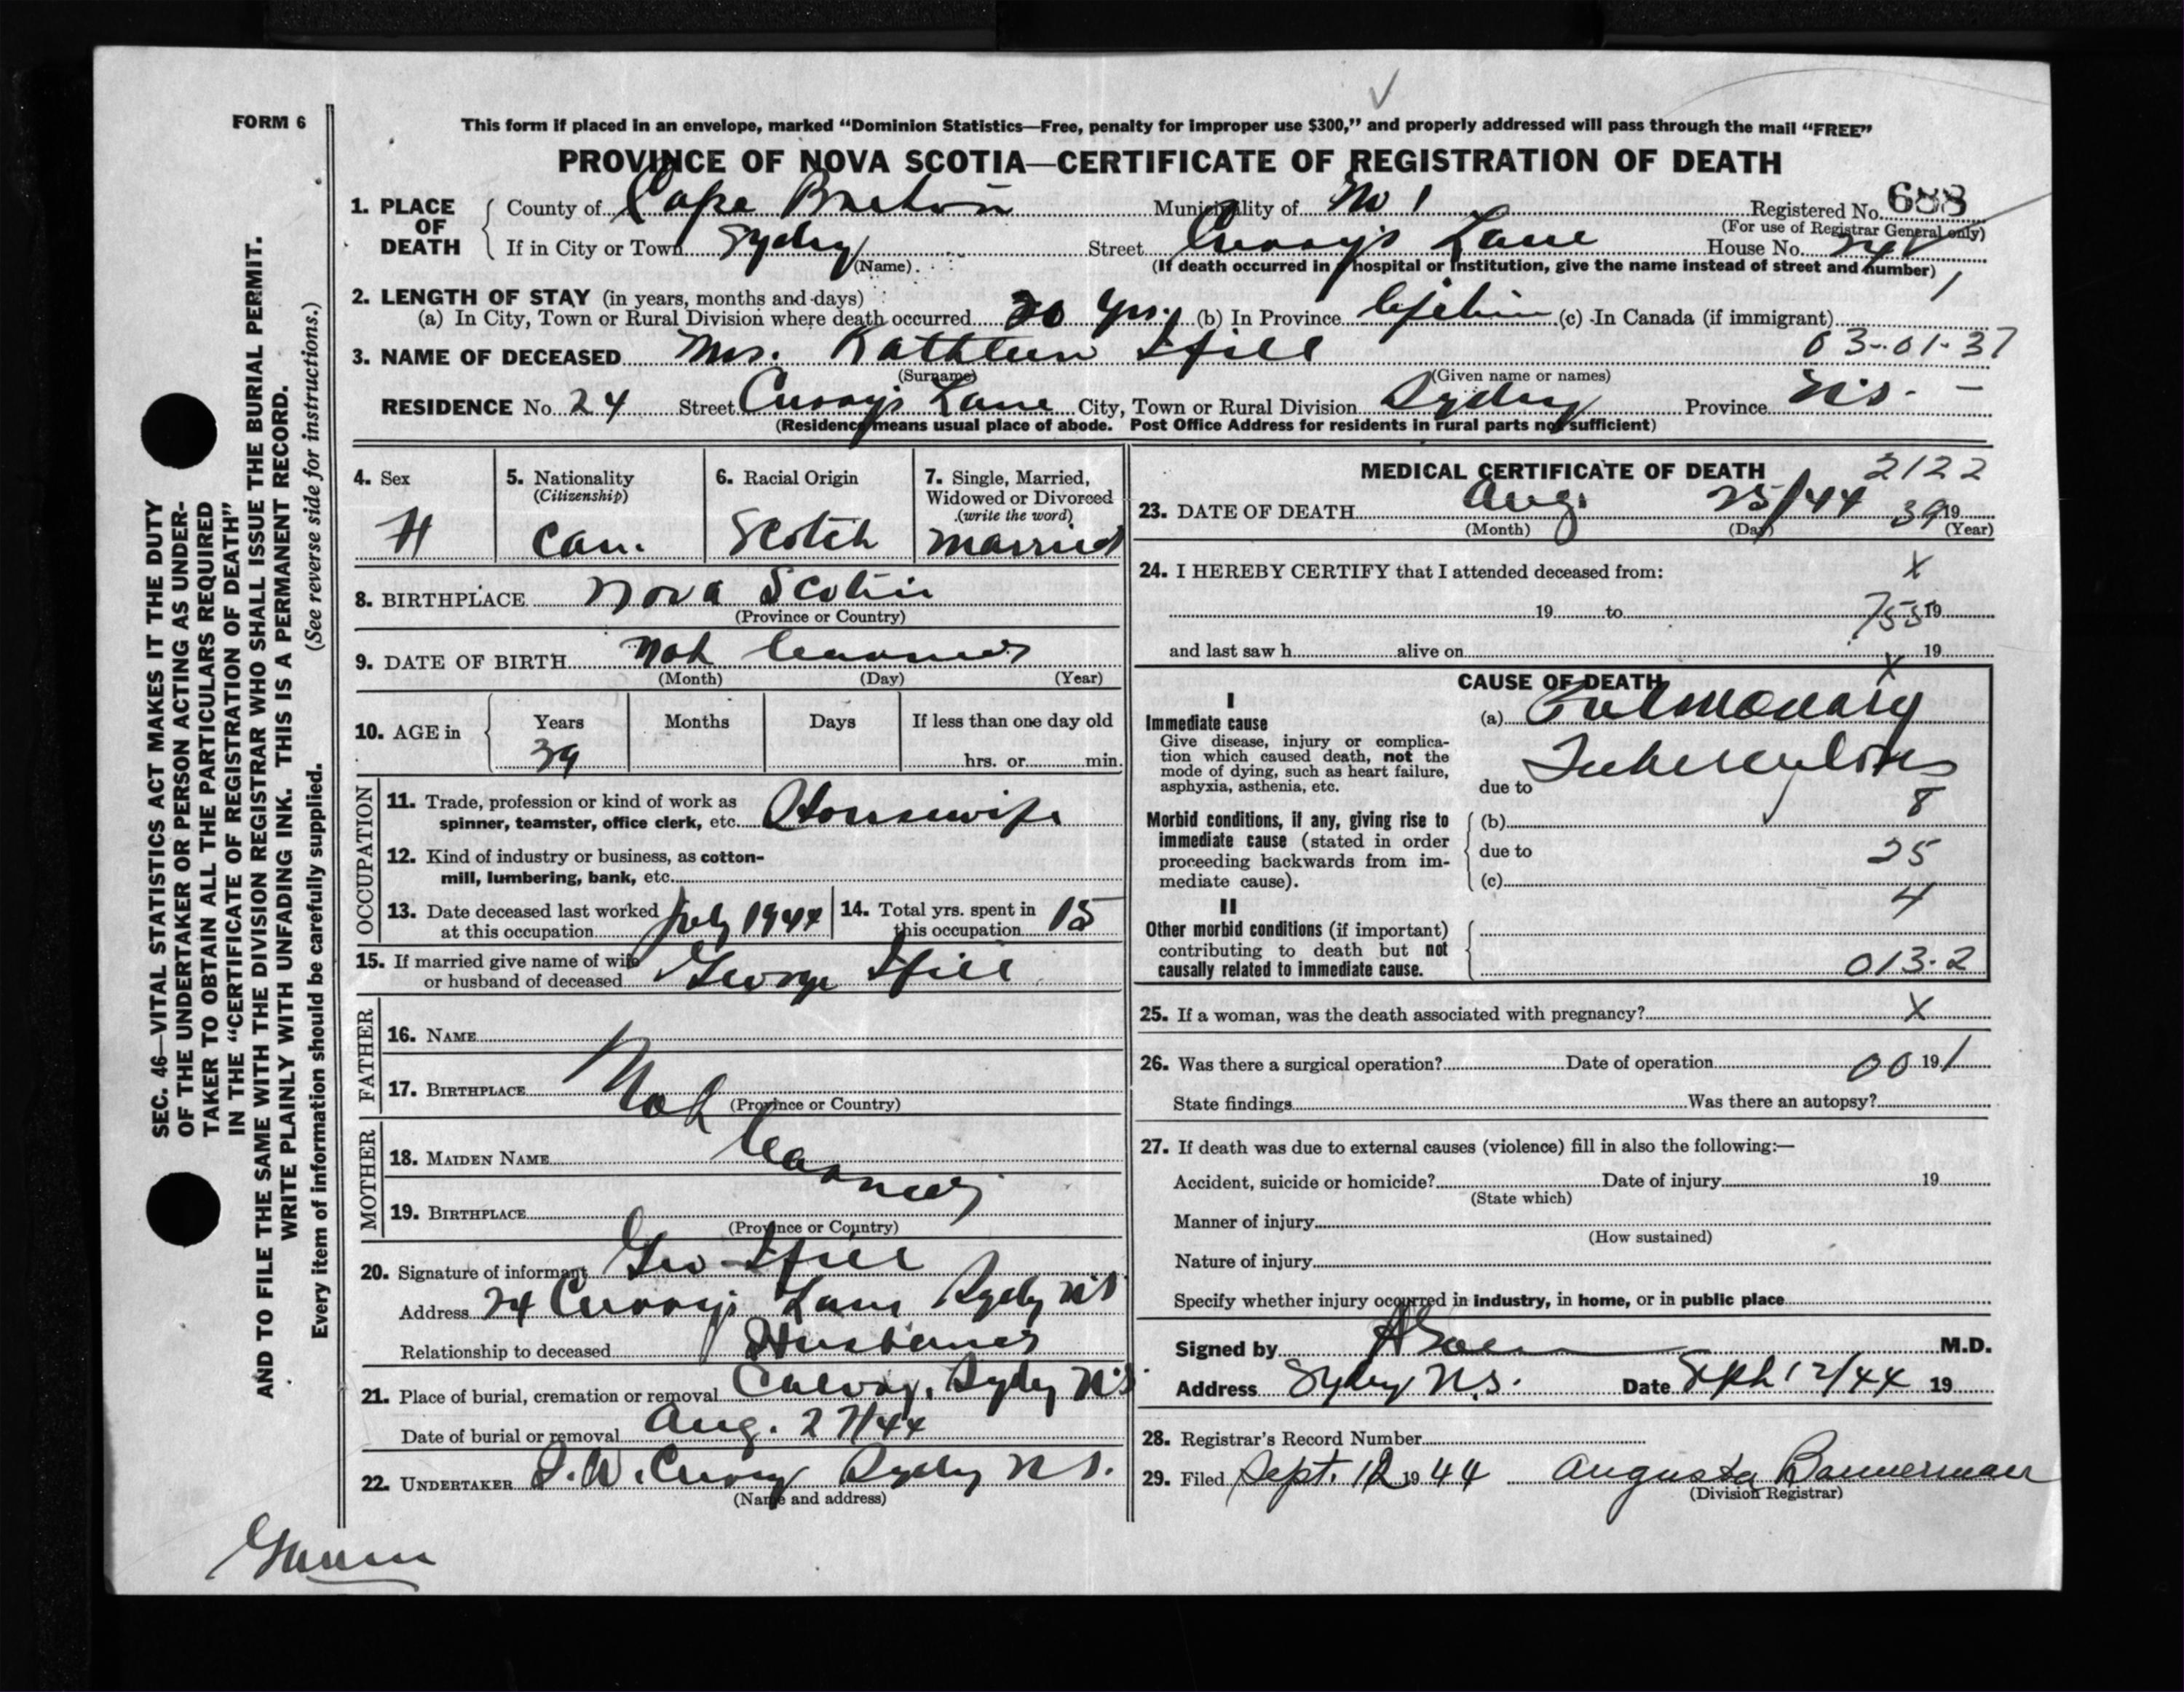 FORM 6
This form if placed in an envelope, marked “Dominion Statistics—Free, penalty for improper use $300,” and properly addressed will pass through the mail “FREE”
PROVINCE OF NOVA SCOTIA—CERTIFICATE OF REGISTRATION OF DEATH
1. PLACE OF DEATH County of Cape Breton Municipality of No 1 Registered No. 688
(For use of Registrar General only)
If in City or Town Sydney Street Curry's Lane House No. 24
(Name) (If death occurred in a hospital or institution, give the name instead of street and number) 1
2. LENGTH OF STAY (in years, months and days)
(a) In City, Town or Rural Division where death occurred 20 yrs. (b) In Province lifetime (c) In Canada (if immigrant)
3. NAME OF DECEASED Mrs. Kathleen 03-01-37
(Surname) (Given name or names)
RESIDENCE No. 24 Street Curry's Lane City, Town or Rural Division Sydney Province N.S.
(Residence means usual place of abode. Post Office Address for residents in rural parts not sufficient)
4. Sex 5. Nationality (Citizenship) 6. Racial Origin 7. Single, Married, Widowed or Divorced (write the word)
Can. Scotch married
8. BIRTHPLACE Nova Scotia
(Province or Country)
9. DATE OF BIRTH Not
(Month) (Day) (Year)
10. AGE in Years Months Days If less than one day old
39 hrs. or min.
OCCUPATION
11. Trade, profession or kind of work as spinner, teamster, office clerk, etc. Housewife
12. Kind of industry or business, as cotton-mill, lumbering, bank, etc.
13. Date deceased last worked at this occupation July 1944 14. Total yrs. spent in this occupation 15
15. If married give name of wife or husband of deceased George
FATHER
16. NAME
17. BIRTHPLACE Not
(Province or Country)
MOTHER
18. MAIDEN NAME
19. BIRTHPLACE
(Province or Country)
20. Signature of informant Geo
Address 24 Curry's Lane Sydney N.S
Relationship to deceased Husband
21. Place of burial, cremation or removal Calvary, Sydney N.S
Date of burial or removal Aug. 27/44
22. UNDERTAKER Curry Sydney N.S.
(Name and address)
MEDICAL CERTIFICATE OF DEATH 2122
23. DATE OF DEATH Aug. 25/44 39 19
(Month) (Day) (Year)
24. I HEREBY CERTIFY that I attended deceased from: X
19 to 755 19
and last saw h alive on 19
X
CAUSE OF DEATH
I
Immediate cause (a) Pulmonary
Give disease, injury or complication which caused death, not the mode of dying, such as heart failure, asphyxia, asthenia, etc.
due to Tuberculosis
8
Morbid conditions, if any, giving rise to immediate cause (stated in order proceeding backwards from immediate cause).
(b)
due to 25
(c)
4
II
Other morbid conditions (if important) contributing to death but not causally related to immediate cause.
013.2
25. If a woman, was the death associated with pregnancy? X
26. Was there a surgical operation? Date of operation 00 19 1
State findings Was there an autopsy?
27. If death was due to external causes (violence) fill in also the following:—
Accident, suicide or homicide? Date of injury 19
(State which)
Manner of injury
(How sustained)
Nature of injury
Specify whether injury occurred in industry, in home, or in public place
Signed by M.D.
Address Sydney N.S. Date Sept 12/44 19
28. Registrar's Record Number
29. Filed Sept. 12 1944 Augusta Bannerman
(Division Registrar)
SEC. 46—VITAL STATISTICS ACT MAKES IT THE DUTY
OF THE UNDERTAKER OR PERSON ACTING AS UNDER-
TAKER TO OBTAIN ALL THE PARTICULARS REQUIRED
IN THE “CERTIFICATE OF REGISTRATION OF DEATH”
AND TO FILE THE SAME WITH THE DIVISION REGISTRAR WHO SHALL ISSUE THE BURIAL PERMIT.
WRITE PLAINLY WITH UNFADING INK. THIS IS A PERMANENT RECORD.
Every item of information should be carefully supplied. (See reverse side for instructions.)